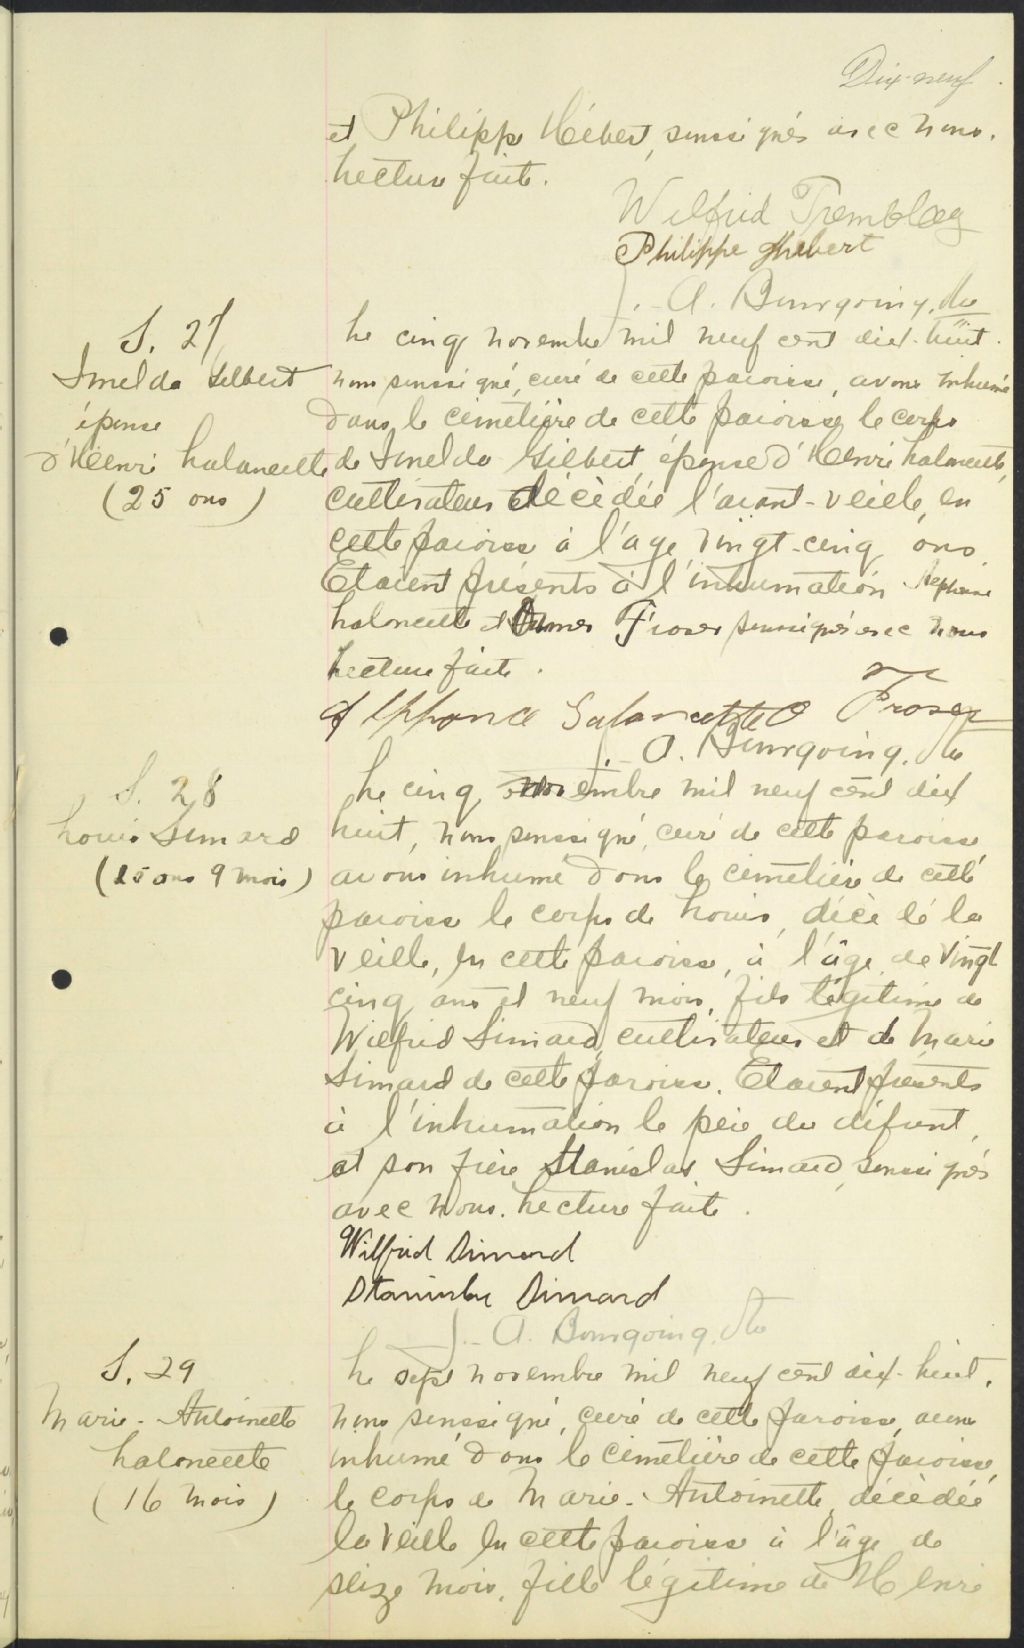 Dix-neuf
et Philippe Hébert, soussignés avec nous.
Lecture faite.
Wilfrid Tremblay
Philippe Hébert
J.-A. Bourgoing, Ptre
S. 27
Imelda Gilbert
épouse
d'Henri Lalancette
(25 ans)
Le cinq novembre mil neuf cent dix-huit.
nous soussigné, curé de cette paroisse, avons inhumé
dans le cimetière de cette paroisse, le corps
de Imelda Gilbert, épouse d'Henri Lalancette,
cultivateur décédée l'avant-veille, en
cette paroisse à l'age vingt-cinq ans.
Etaient présents à l'inhumation
Lalancette et Fraser soussignés avec nous
Lecture faite.
Lalancette O Fraser
J.-A. Bourgoing, Ptre
S. 28
Louis Simard
(25 ans 9 mois)
Le cinq novembre mil neuf cent dix
huit, nous soussigné, curé de cette paroisse
avons inhumé dans le cimetière de cette
paroisse le corps de Louis, décédé la
veille, en cette paroisse, à l'âge de vingt
cinq ans et neuf mois, fils légitime de
Wilfrid Simard, cultivateur et de Marie
Simard de cette paroisse. Etaient présents
à l'inhumation le père du défunt,
et son frère Stanislas Simard, soussignés
avec nous. Lecture faite.
Wilfrid Simard
Stanislas Simard
J.-A. Bourgoing, Ptre
S. 29
Marie-Antoinette
Lalancette
(16 mois)
Le sept novembre mil neuf cent dix-huit,
nous soussigné, curé de cette paroisse, avons
inhumé dans le cimetière de cette paroisse,
le corps de Marie-Antoinette, décédée
la veille en cette paroisse à l'âge de
seize mois, fille légitime de Henri